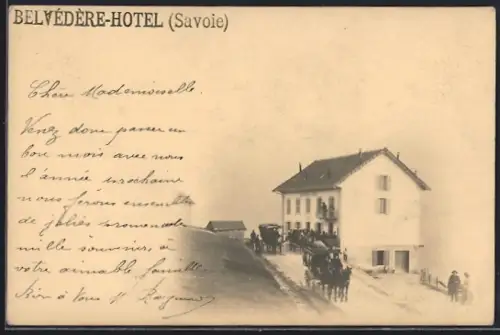 BELVÉDÈRE-HOTEL (Savoie)
Chère Mademoiselle.
Venez donc passer un
bon mois avec nous
l'année prochaine
nous ferons ensemble
de jolies promenade
mille souvenirs à
votre aimable famille
Bien à Vous